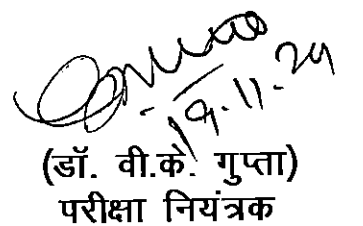 19.11.24
(डॉ. वी.के. गुप्ता)
परीक्षा नियंत्रक